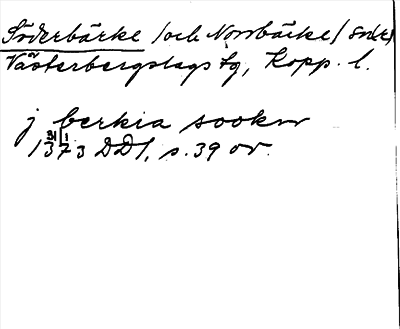 Söderbärke (och Norrbärke) sndr)
Västerbergslags tg, Kopp. l.
j berkia sookn
31/1 1373 DD1, s. 39 or.